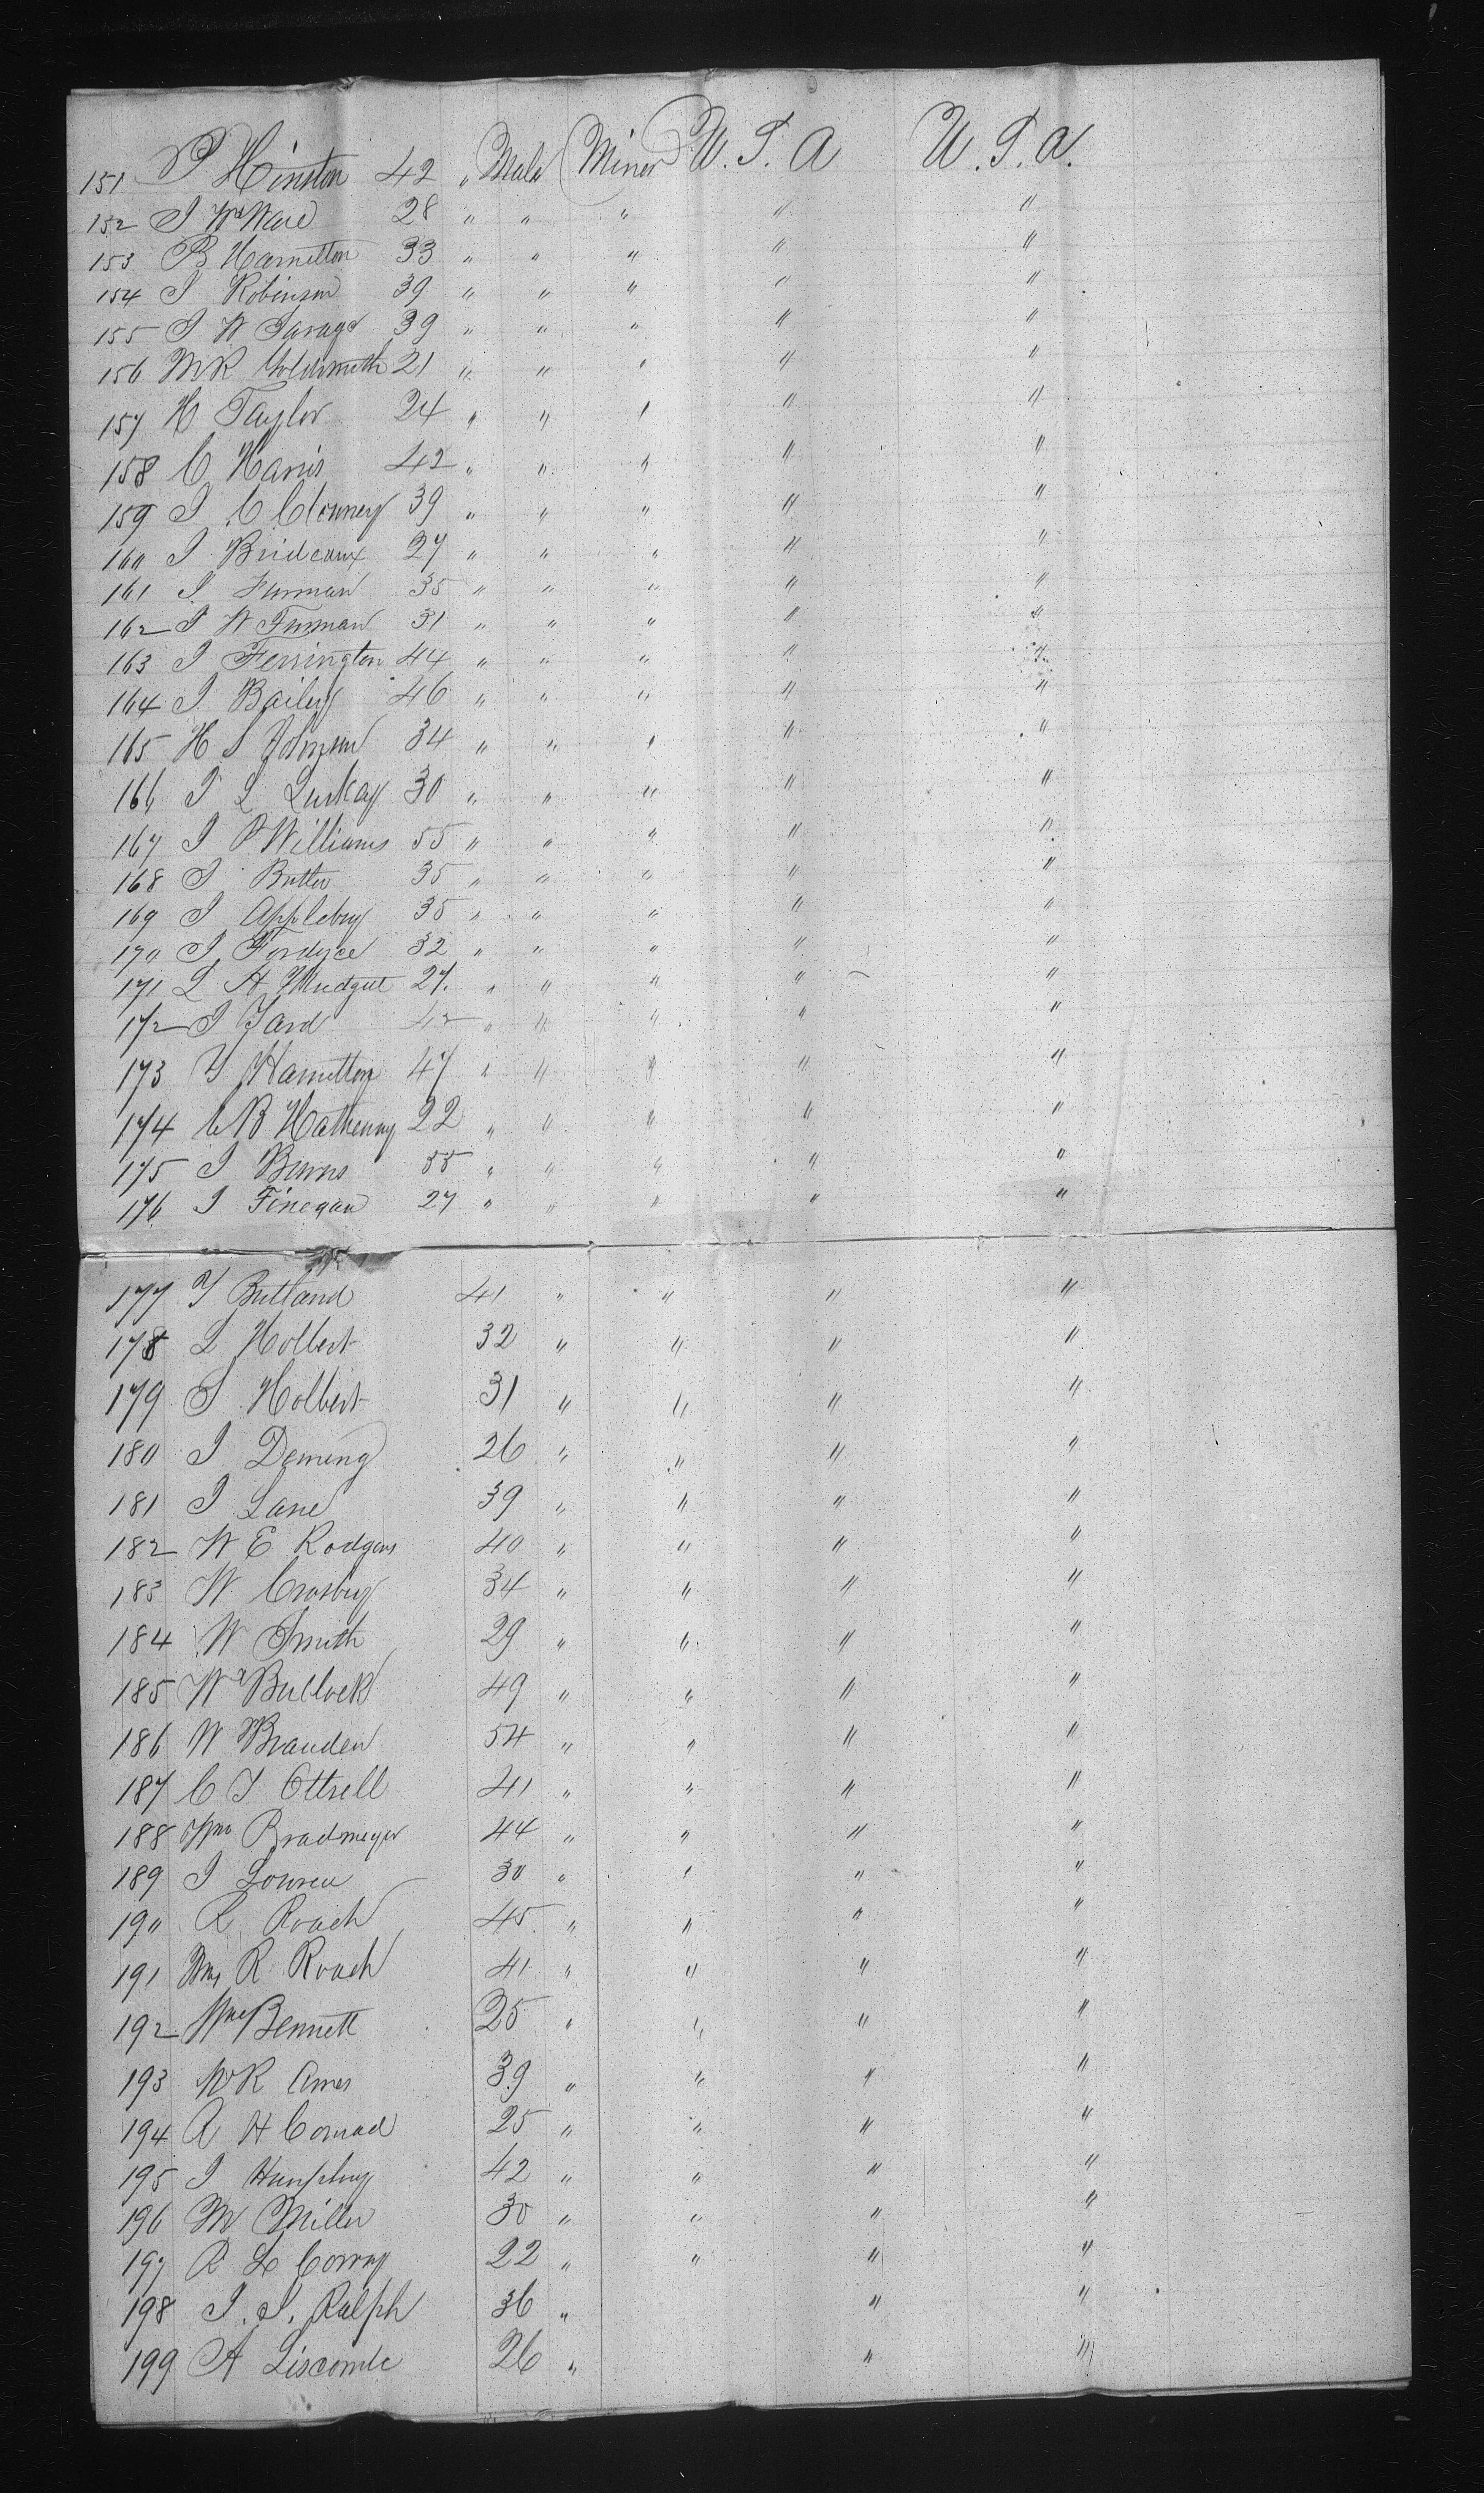 151 P Hinston 42 " Male Miner U. S. A U. S. A.
152 J Wm Ware 28 " " " " "
153 B Hamilton 33 " " " " "
154 J Robinson 39 " " " " "
155 J W Savage 39 " " " " "
156 M R Goldsmith 21 " " " " "
157 H Taylor 24 " " " " "
158 C Harris 42 " " " " "
159 J C Clonney 39 " " " " "
160 J Brideaux 27 " " " " "
161 J Furman 35 " " " " "
162 J W Furman 31 " " " " "
163 J Ferrington 44 " " " " "
164 J Bailey 46 " " " " "
165 H S Johnson 34 " " " " "
166 J L Luskay 30 " " " " "
167 J P Williams 55 " " " " "
168 J Butler 35 " " " " "
169 J Appleby 35 " " " " "
170 J Fordyce 32 " " " " "
171 L H Mudgut 27. " " " " "
172 J Zard 42 " " " " "
173 Y Hamilton 47 " " " " "
174 C B Hathenny 22 " " " " "
175 J Burns 55 " " " " "
176 J Finegan 27 " " " " "
177 Y Butland 41 " " " "
178 L Holbert 32 " " " "
179 S Holbert 31 " " " "
180 J Deming 26 " " " "
181 J Lane 39 " " " "
182 W E Rodgers 40 " " " "
183 W Crosby 34 " " " "
184 W Smith 29 " " " "
185 Wm Bullock 49 " " " "
186 W Branden 54 " " " "
187 C J Ottrell 41 " " " "
188 Wm Bradmeyer 44 " " " "
189 J 30 " " " "
190 R Roach 45 " " " "
191 Wm R Roach 41 " " " "
192 Wm Bennett 25 " " " "
193 W R Ames 39 " " " "
194 A H Conrad 25 " " " "
195 J Humphry 42 " " " "
196 M Miller 30 " " " "
197 R L Conray 22 " " " "
198 J. J. Ralph 36 " " "
199 A Liscomb 26 " " "